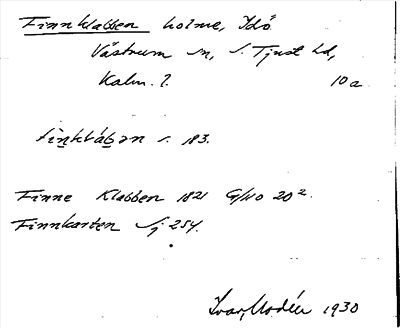 Finnklabben holme, Idö
Västrum sn, S. Tjust hd,
Kalm. l. 10a
finklában s. 183.
Finne Klabben 1821 G/40 20²
Finnkarten Sj 254.
Ivar Modéer 1930